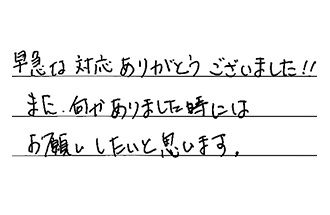 早急な対応ありがとうございました!!
また、何かありました時には
お願いしたいと思います。